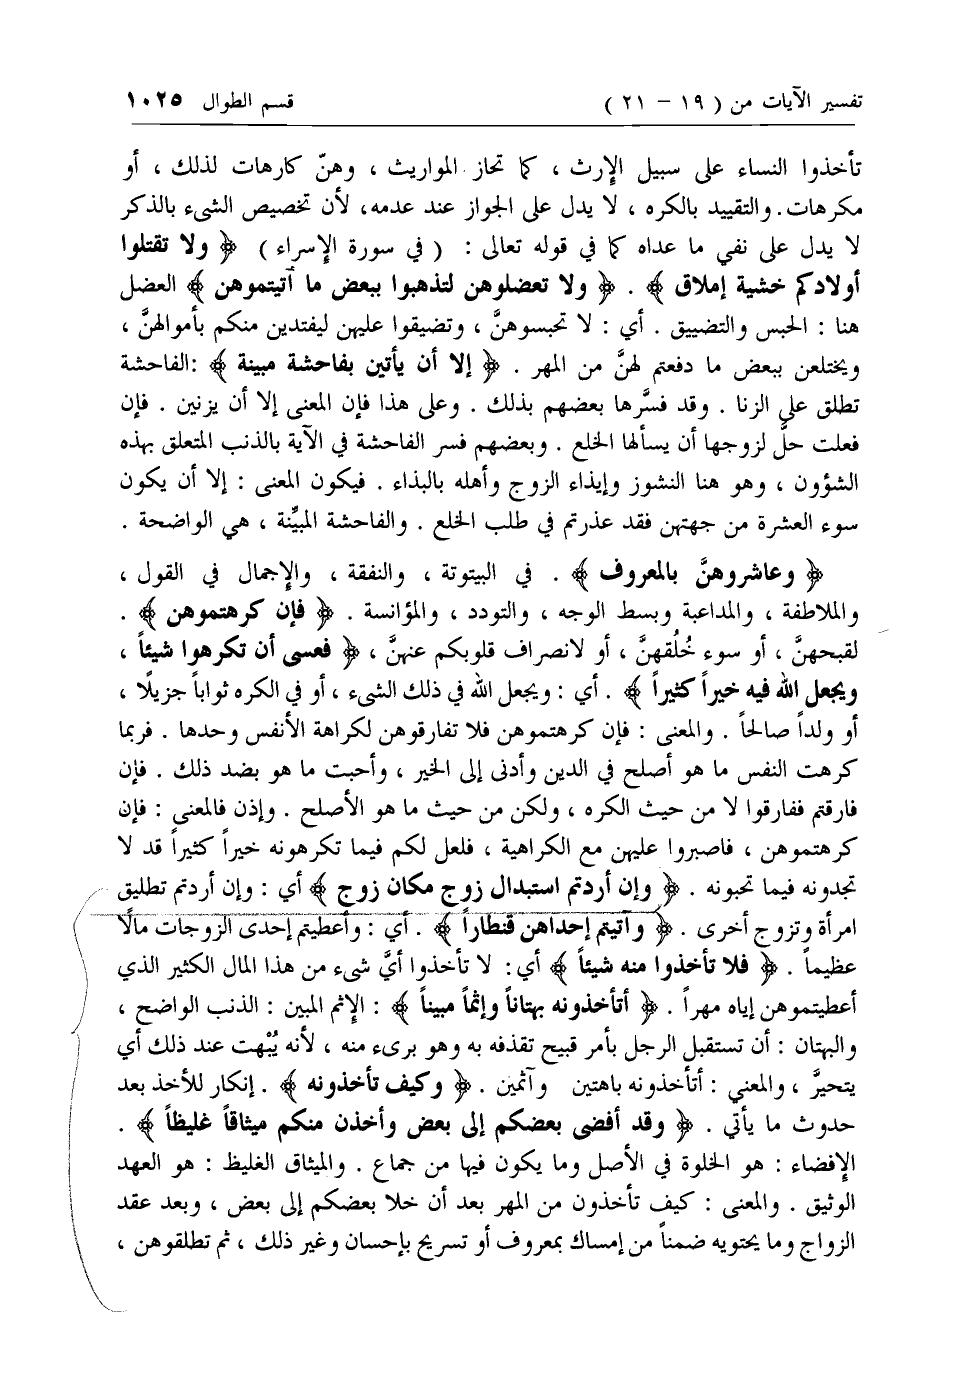 تفسير الآيات من ( ١٩ – ٢١ ) قسم الطوال ١٠٢٥
تأخذوا النساء على سبيل الإرث ، كما تحاز المواريث ، وهنّ كارهات لذلك ، أو
مكرهات. والتقييد بالكره ، لا يدل على الجواز عند عدمه، لأن تخصيص الشيء بالذكر
لا يدل على نفي ما عداه كما في قوله تعالى : ( في سورة الإسراء ) ﴿ ولا تقتلوا
أولادكم خشية إملاق ﴾ . ﴿ ولا تعضلوهن لتذهبوا ببعض ما آتيتموهن ﴾ العضل
هنا : الحبس والتضييق . أي : لا تحبسوهنَّ ، وتضيقوا عليهن ليفتدين منكم بأموالهنَّ ،
ويختلعن ببعض ما دفعتم لهنَّ من المهر . ﴿ إلا أن يأتين بفاحشة مبينة ﴾ :الفاحشة
تطلق على الزنا . وقد فسَّرها بعضهم بذلك . وعلى هذا فإن المعنى إلا أن يزنين . فإن
فعلت حلَّ لزوجها أن يسألها الخلع . وبعضهم فسر الفاحشة في الآية بالذنب المتعلق بهذه
الشؤون ، وهو هنا النشوز وإيذاء الزوج وأهله بالبذاء . فيكون المعنى : إلا أن يكون
سوء العشرة من جهتهن فقد عذرتم في طلب الخلع . والفاحشة المبيِّنة ، هي الواضحة .
﴿ وعاشروهنَّ بالمعروف ﴾ . في البيتوتة ، والنفقة ، والإجمال في القول ،
والملاطفة ، والمداعبة وبسط الوجه ، والتودد ، والمؤانسة . ﴿ فإن كرهتموهن ﴾ .
لقبحهنَّ ، أو سوء خُلُقهنَّ ، أو لانصراف قلوبكم عنهنَّ ، ﴿ فعسى أن تكرهوا شيئاً ،
ويجعل الله فيه خيراً كثيراً ﴾ . أي : ويجعل الله في ذلك الشيء ، أو في الكره ثواباً جزيلًا ،
أو ولداً صالحاً . والمعنى : فإن كرهتموهن فلا تفارقوهن لكراهة الأنفس وحدها . فربما
كرهت النفس ما هو أصلح في الدين وأدنى إلى الخير ، وأحبت ما هو بضد ذلك . فإن
فارقتم ففارقوا لا من حيث الكره ، ولكن من حيث ما هو الأصلح . وإذن فالمعنى : فإن
كرهتموهن ، فاصبروا عليهن مع الكراهية ، فلعل لكم فيما تكرهونه خيراً كثيراً قد لا
تجدونه فيما تحبونه . ﴿ وإن أردتم استبدال زوج مكان زوج ﴾ أي : وإن أردتم تطليق
امرأة وتزوج أخرى . ﴿ وآتيتم إحداهن قنطاراً ﴾ . أي : وأعطيتم إحدى الزوجات مالًا
عظيماً . ﴿ فلا تأخذوا منه شيئاً ﴾ أي: لا تأخذوا أيَّ شيء من هذا المال الكثير الذي
أعطيتموهن إياه مهراً . ﴿ أتأخذونه بهتاناً وإثماً مبيناً ﴾ : الإثم المبين : الذنب الواضح ،
والبهتان : أن تستقبل الرجل بأمر قبيح تقذفه به وهو بريء منه ، لأنه يُبْهت عند ذلك أي
يتحيرَّ ، والمعني : أتأخذونه باهتين وآثمين . ﴿ وكيف تأخذونه ﴾ . إنكار للأخذ بعد
حدوث ما يأتي . ﴿ وقد أفضى بعضكم إلى بعض وأخذن منكم ميثاقاً غليظاً ﴾ .
الإفضاء : هو الخلوة في الأصل وما يكون فيها من جماع . والميثاق الغليظ : هو العهد
الوثيق . والمعنى : كيف تأخذون من المهر بعد أن خلا بعضكم إلى بعض ، وبعد عقد
الزواج وما يحتويه ضمناً من إمساك بمعروف أو تسريح بإحسان وغير ذلك ، ثم تطلقوهن ،